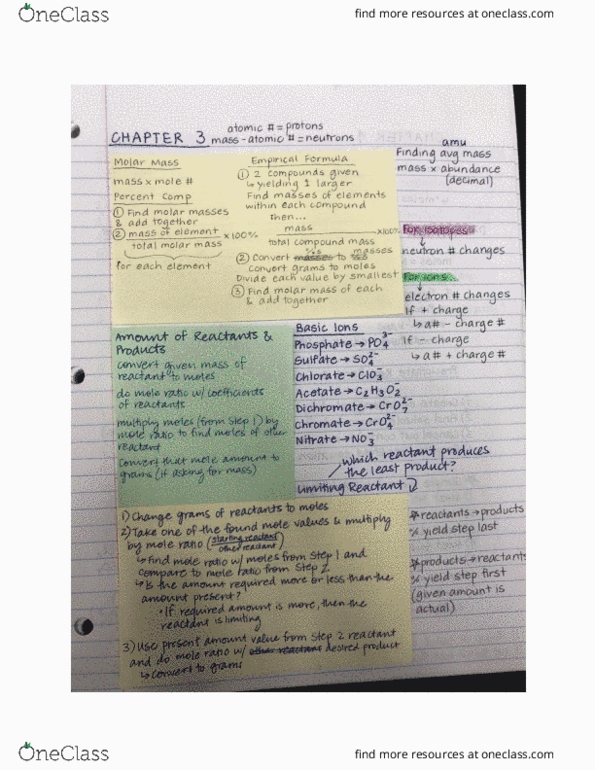 OneClass
find more resources at oneclass.com
CHAPTER 3
atomic # = protons
mass - atomic # = neutrons
Molar Mass
mass x mole #
Percent Comp
① Find molar masses
& add together
② mass of element x 100%
total molar mass
for each element
Empirical Formula
① 2 compounds given
↳ yielding 1 larger
Find masses of elements
within each compound
then...
mass x100%
total compound mass
② Convert masses to masses
convert grams to moles
Divide each value by smallest
③ Find molar mass of each
& add together
amu
Finding avg mass
mass x abundance
(decimal)
For isotopes
↓
neutron # changes
For ions
↓
electron # changes
If + charge
↳ a# - charge #
If - charge
↳ a# + charge #
Amount of Reactants &
Products
convert given mass of
reactant to moles
do mole ratio w/ coefficients
of reactants
multiply moles (from Step 1) by
mole ratio to find moles of other
reactant
convert that mole amount to
grams (if asking for mass)
Basic Ions
Phosphate → PO₄³⁻
Sulfate → SO₄²⁻
Chlorate → ClO₃⁻
Acetate → C₂H₃O₂⁻
Dichromate → CrO₇²⁻
Chromate → CrO₄²⁻
Nitrate → NO₃⁻
which reactant produces
the least product?
Limiting Reactant
1) Change grams of reactants to moles
2) Take one of the found mole values & multiply
by mole ratio (starting reactant / other reactant)
↳ Find mole ratio w/ moles from Step 1 and
compare to mole ratio from Step 2
↳ Is the amount required more or less than the
amount present?
• If required amount is more, then the
reactant is limiting
3) Use present amount value from Step 2 reactant
and do mole ratio w/ other reactant desired product
↳ convert to grams
* reactants → products
% yield step last
* products → reactants
% yield step first
(given amount is
actual)
OneClass
find more resources at oneclass.com